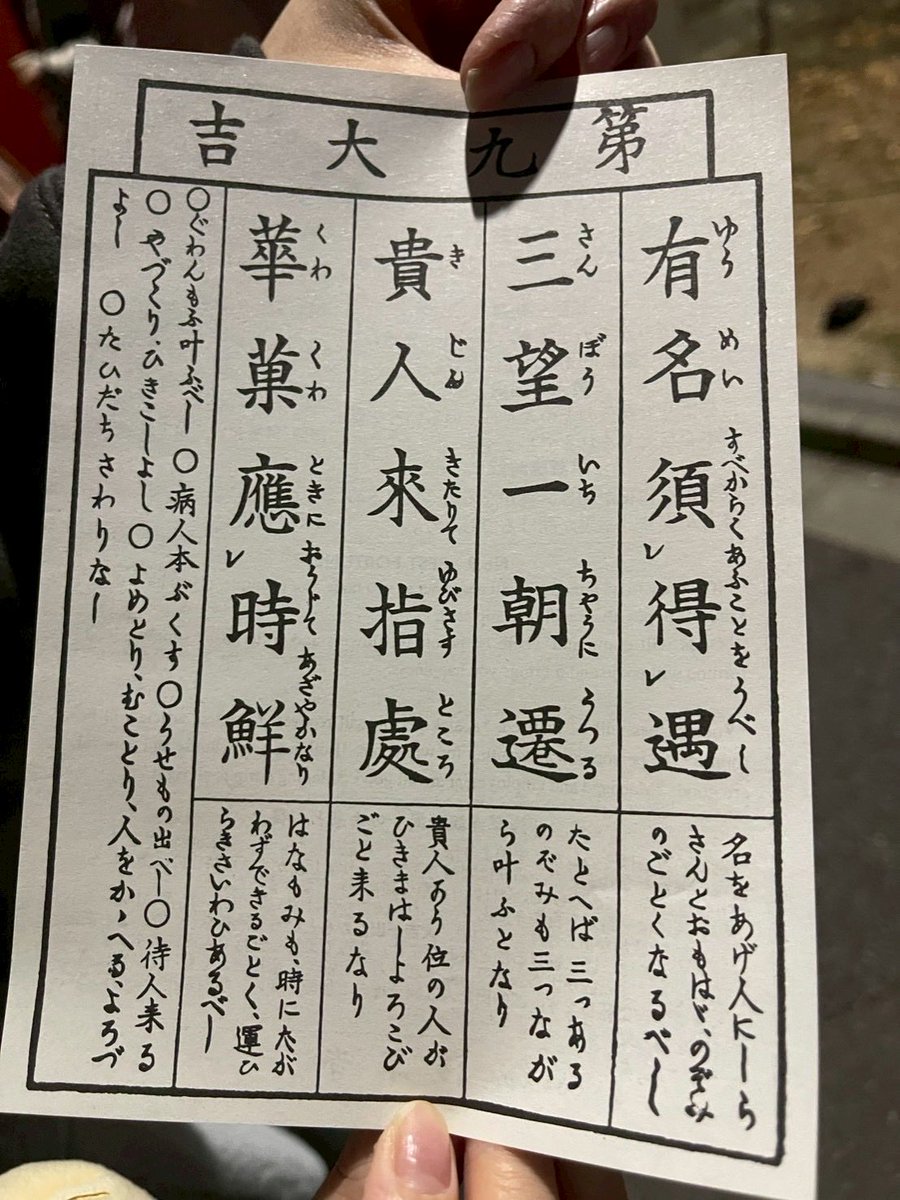 第九大吉
有名須レ得レ遇
ゆう めい すべからくあふことをうべし
名をあげ人にしら
さんとおもはゞ、のぞみ
のごとくなるべし
三望一朝遷
さん ぼう いち ちやうに うつる
たとへば三つある
のぞみも三つなが
ら叶ふとなり
貴人來指處
き じん きたりて ゆびさす ところ
貴人かう位の人が
ひきまはしよろこび
ごと来るなり
華菓應レ時鮮
くわ くわ ときに おうじて あざやかなり
はなもみも、時にたが
わずできるごとく、運ひ
らきさいわひあるべし
○ぐわんもふ叶ふべし ○病人本ぶくす ○うせもの出べし ○待人来る
○やづくり、ひきこしよし ○よめとり、むことり、人をかゝへる、よろづ
よし ○たひだちさわりなし